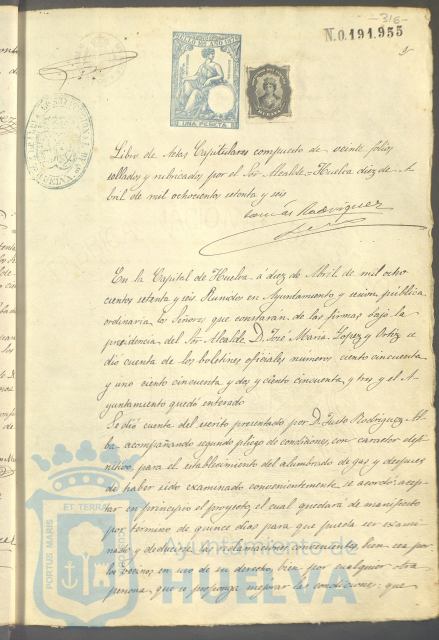 -316-
N.0.191.955
SELLO 11º AÑO 1876
UNA PESETA
Libro de Actas Capitulares compuesto de veinte folios
sellados y rubricados por el Sor Alcalde = Huelva diez de A-
bril de mil ochocientos setenta y seis
Tomás Rodriguez
En la Capital de Huelva a diez de Abril de mil ocho
cientos setenta y seis. Reunidos en Ayuntamiento y sesion pública
ordinaria los Señores que constarán de las firmas bajo la
presidencia del Sor Alcalde D. José Maria Lopez y Ortiz se
dió cuenta de los boletines oficiales numeros ciento cincuenta
y uno ciento cincuenta y dos y ciento cincuenta y tres y el A-
yuntamiento quedó enterado
Se dió cuenta del escrito presentado por D. Justo Rodriguez Al-
ba acompañando segundo pliego de condiciones, con caracter defi-
nitivo para el establecimiento del alumbrado de gas y despues
de haber sido examinado convenientemente se acordó: acep-
tar en principio el proyecto, el cual quedará de manifiesto
por termino de quince dias para que pueda ser exami-
nado y deducirse las reclamaciones consiguientes, bien sea por
los vecinos en uso de su derecho, bien por cualquier otra
persona que se proponga mejorar las condiciones; que
PORTUS MARIS ET TERRAE CUSTODIA
Ayuntamiento de
HUELVA